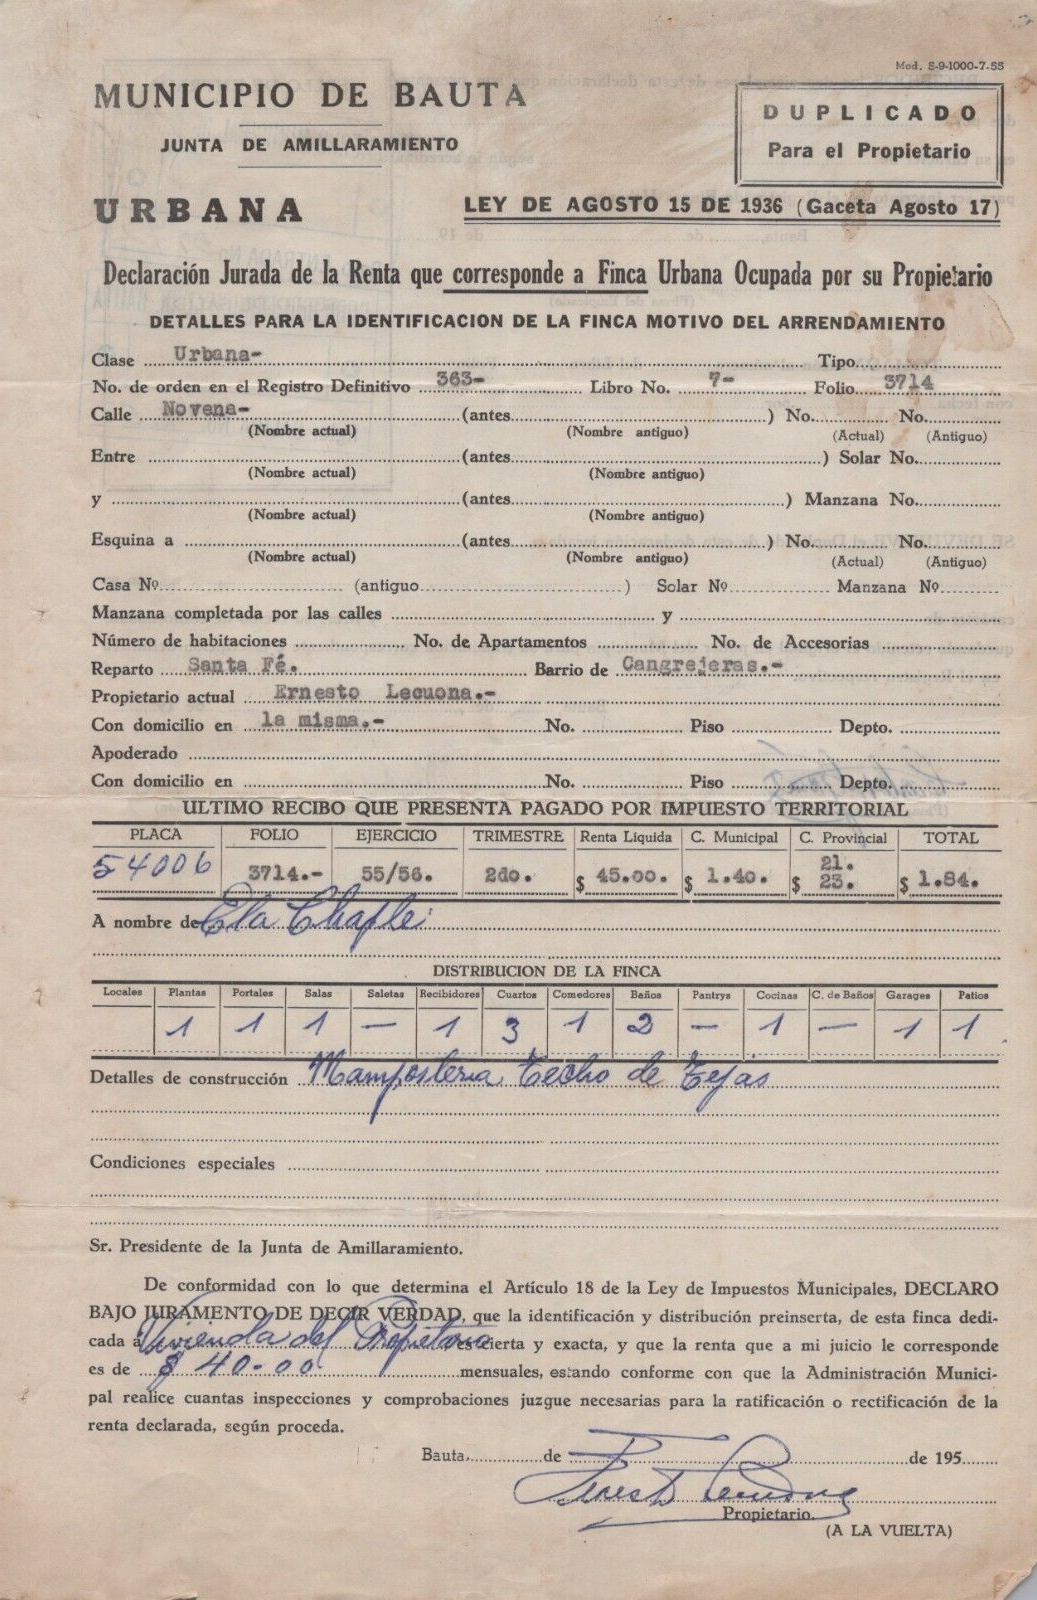 Mod. S-9-1000-7-55
MUNICIPIO DE BAUTA
JUNTA DE AMILLARAMIENTO
DUPLICADO
Para el Propietario
URBANA
LEY DE AGOSTO 15 DE 1936 (Gaceta Agosto 17)
Declaración Jurada de la Renta que corresponde a Finca Urbana Ocupada por su Propietario
DETALLES PARA LA IDENTIFICACION DE LA FINCA MOTIVO DEL ARRENDAMIENTO
Clase Urbana- Tipo
No. de orden en el Registro Definitivo 363- Libro No. 7- Folio 3714
Calle Novena- (antes ) No. No.
(Nombre actual) (Nombre antiguo) (Actual) (Antiguo)
Entre (antes ) Solar No.
(Nombre actual) (Nombre antiguo)
y (antes ) Manzana No.
(Nombre actual) (Nombre antiguo)
Esquina a (antes ) No. No.
(Nombre actual) (Nombre antiguo) (Actual) (Antiguo)
Casa Nº (antiguo ) Solar Nº Manzana Nº
Manzana completada por las calles y
Número de habitaciones No. de Apartamentos No. de Accesorias
Reparto Santa Fé. Barrio de Cangrejeras.-
Propietario actual Ernesto Lecuona.-
Con domicilio en la misma.- No. Piso Depto.
Apoderado
Con domicilio en No. Piso Depto.
ULTIMO RECIBO QUE PRESENTA PAGADO POR IMPUESTO TERRITORIAL
PLACA FOLIO EJERCICIO TRIMESTRE Renta Líquida C. Municipal C. Provincial TOTAL
54006 3714.- 55/56. 2do. $ 45.00. $ 1.40. $ 21. 23. $ 1.84.
A nombre de Ela Chaple
DISTRIBUCION DE LA FINCA
Locales Plantas Portales Salas Saletas Recibidores Cuartos Comedores Baños Pantrys Cocinas C. de Baños Garages Patios
1 1 1 — 1 3 1 2 — 1 — 1 1
Detalles de construcción Mamposteria techo de tejas
Condiciones especiales
Sr. Presidente de la Junta de Amillaramiento.
De conformidad con lo que determina el Artículo 18 de la Ley de Impuestos Municipales, DECLARO
BAJO JURAMENTO DE DECIR VERDAD, que la identificación y distribución preinserta, de esta finca dedi-
cada a Vivienda del Propietario es cierta y exacta, y que la renta que a mi juicio le corresponde
es de $ 40.00 mensuales, estando conforme con que la Administración Munici-
pal realice cuantas inspecciones y comprobaciones juzgue necesarias para la ratificación o rectificación de la
renta declarada, según proceda.
Bauta, de de 195
Ernesto Lecuona
Propietario.
(A LA VUELTA)